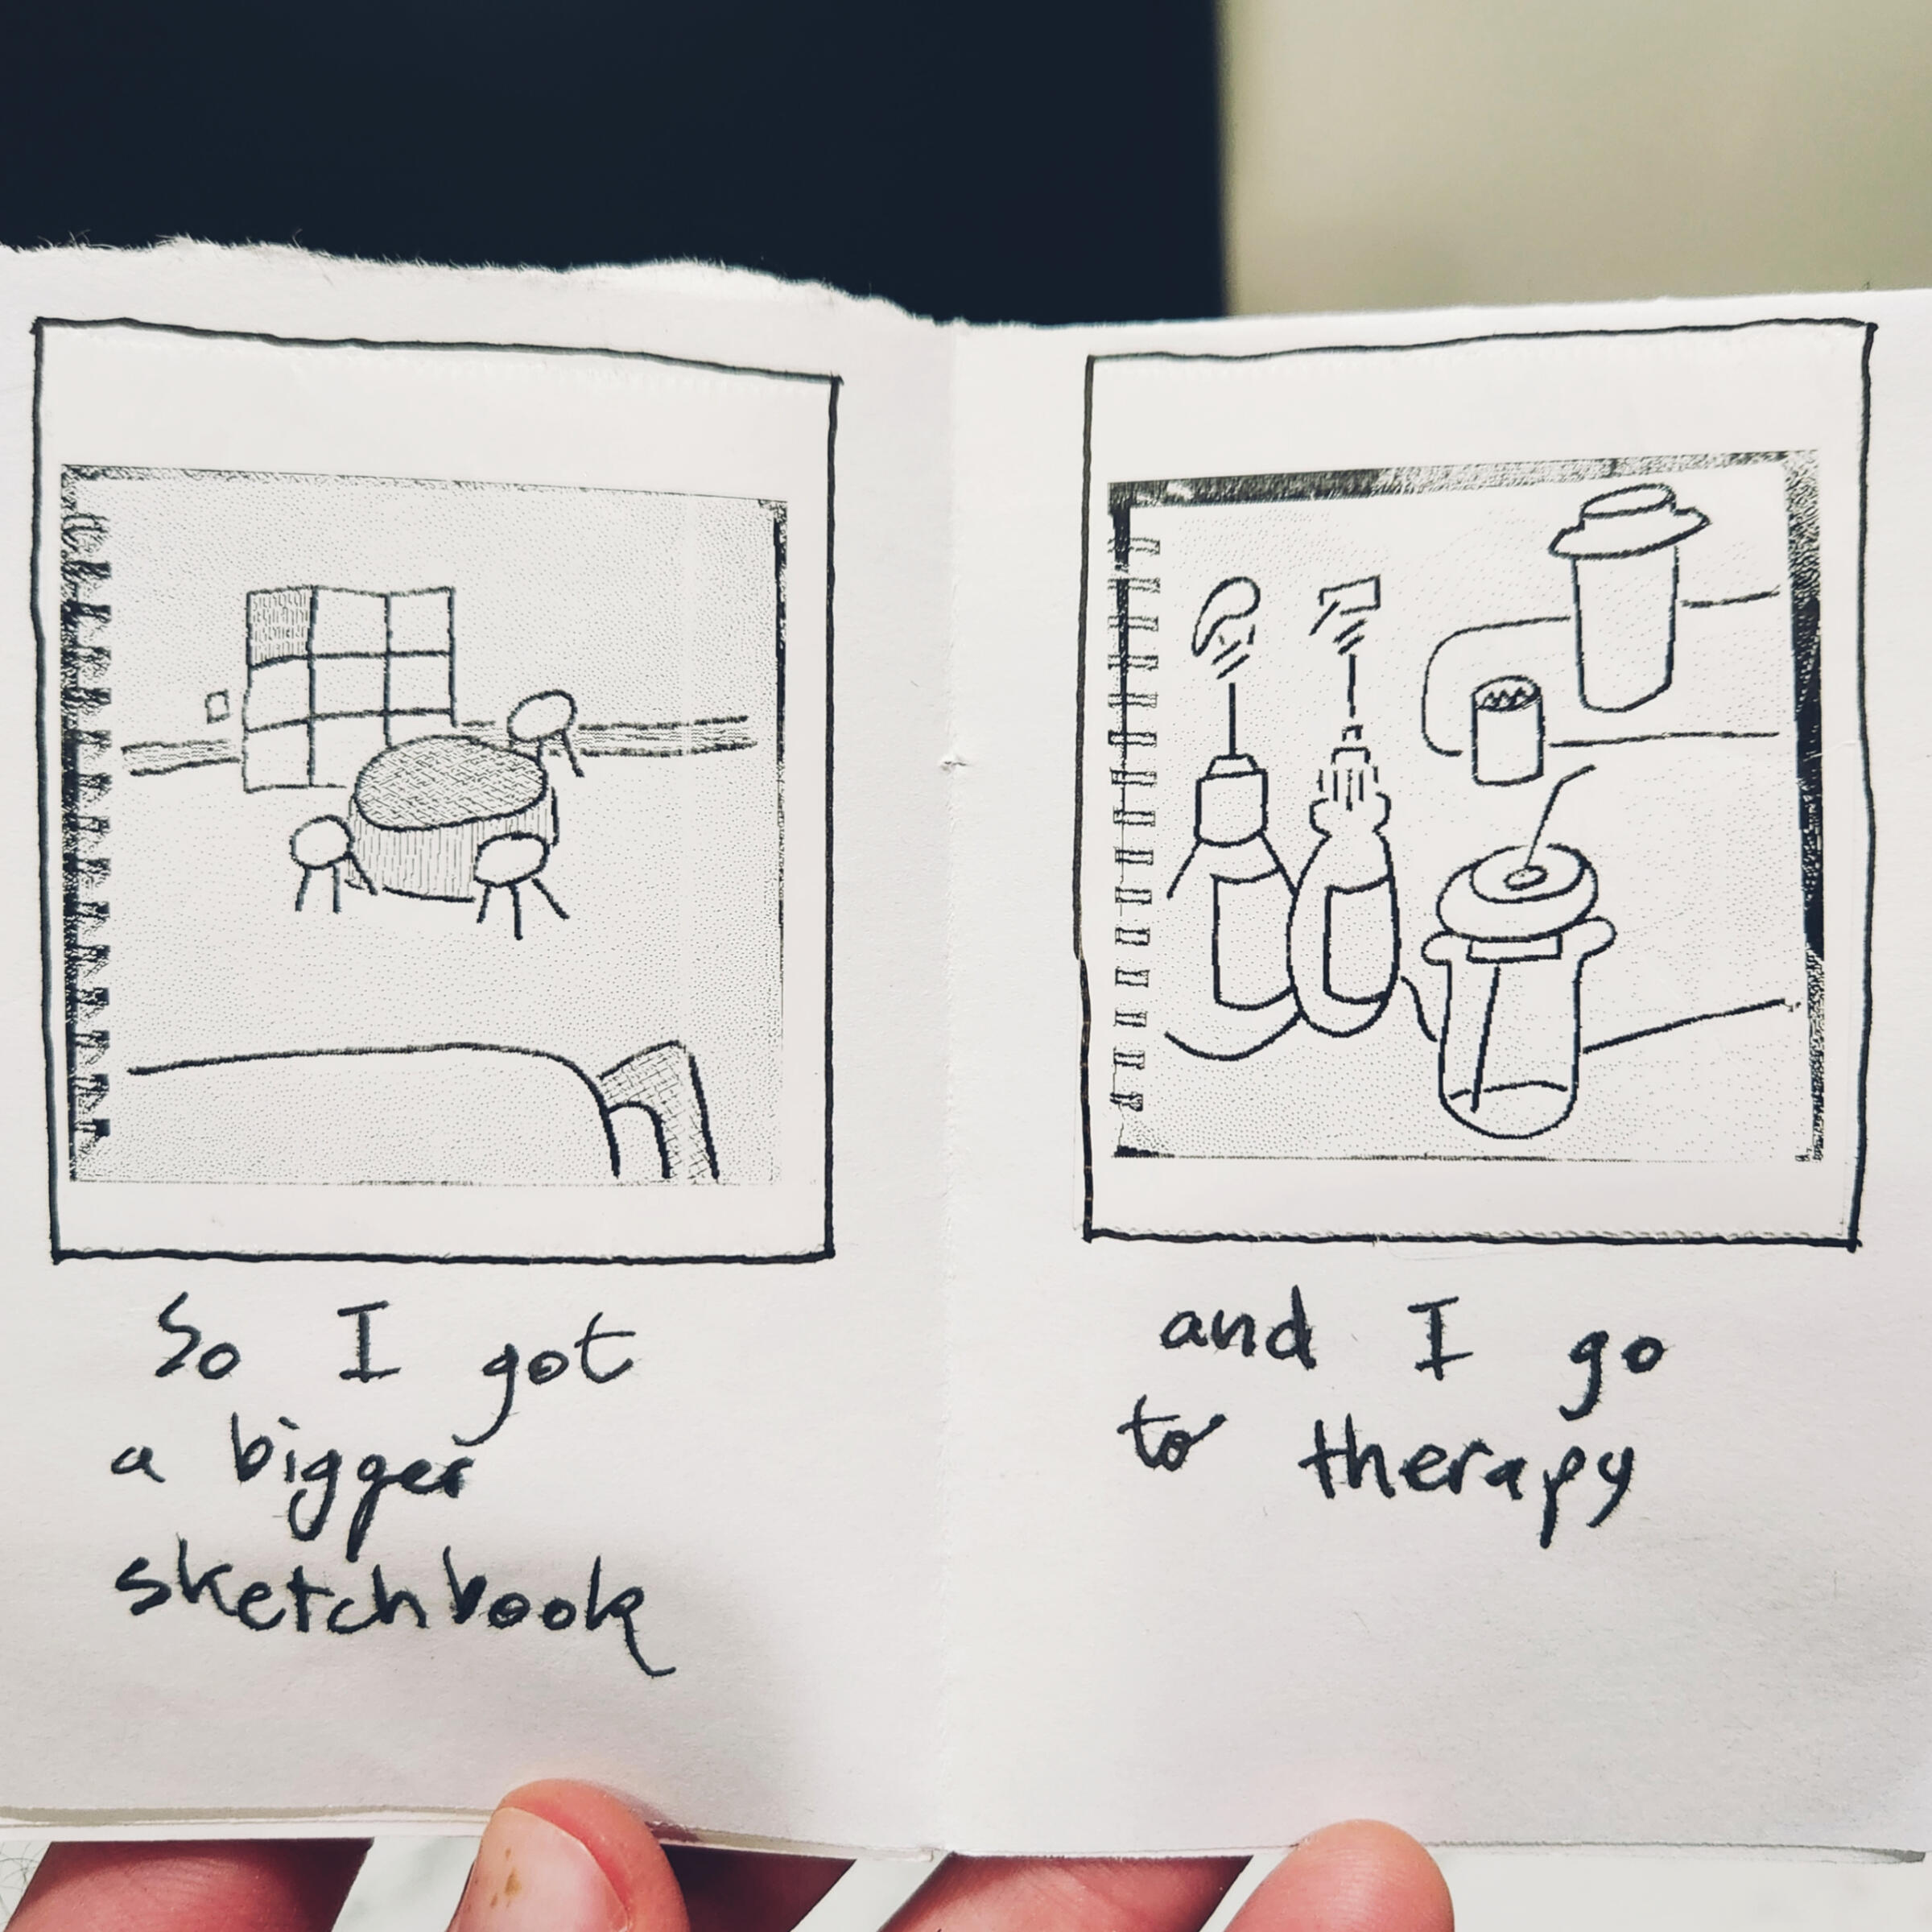 So I got
a bigger
sketchbook
and I go
to therapy